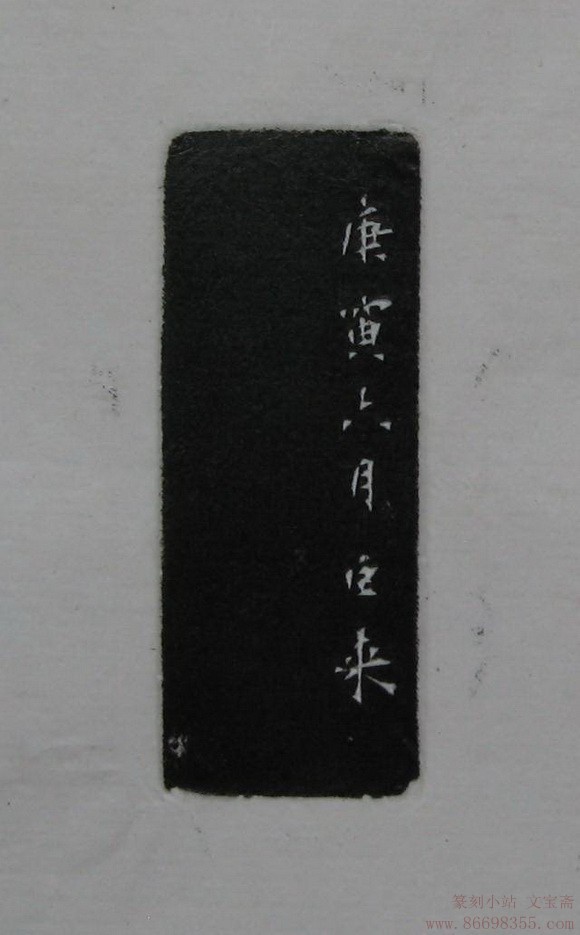 庚寅六月白来
篆刻小站 文宝斋
www.86698355.com